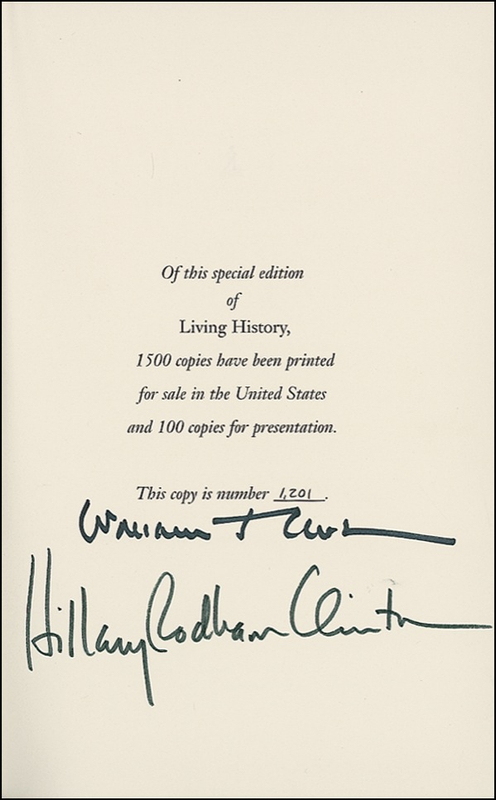 Of this special edition
of
Living History,
1500 copies have been printed
for sale in the United States
and 100 copies for presentation.
This copy is number 1,201.
William J Clinton
Hillary Rodham Clinton